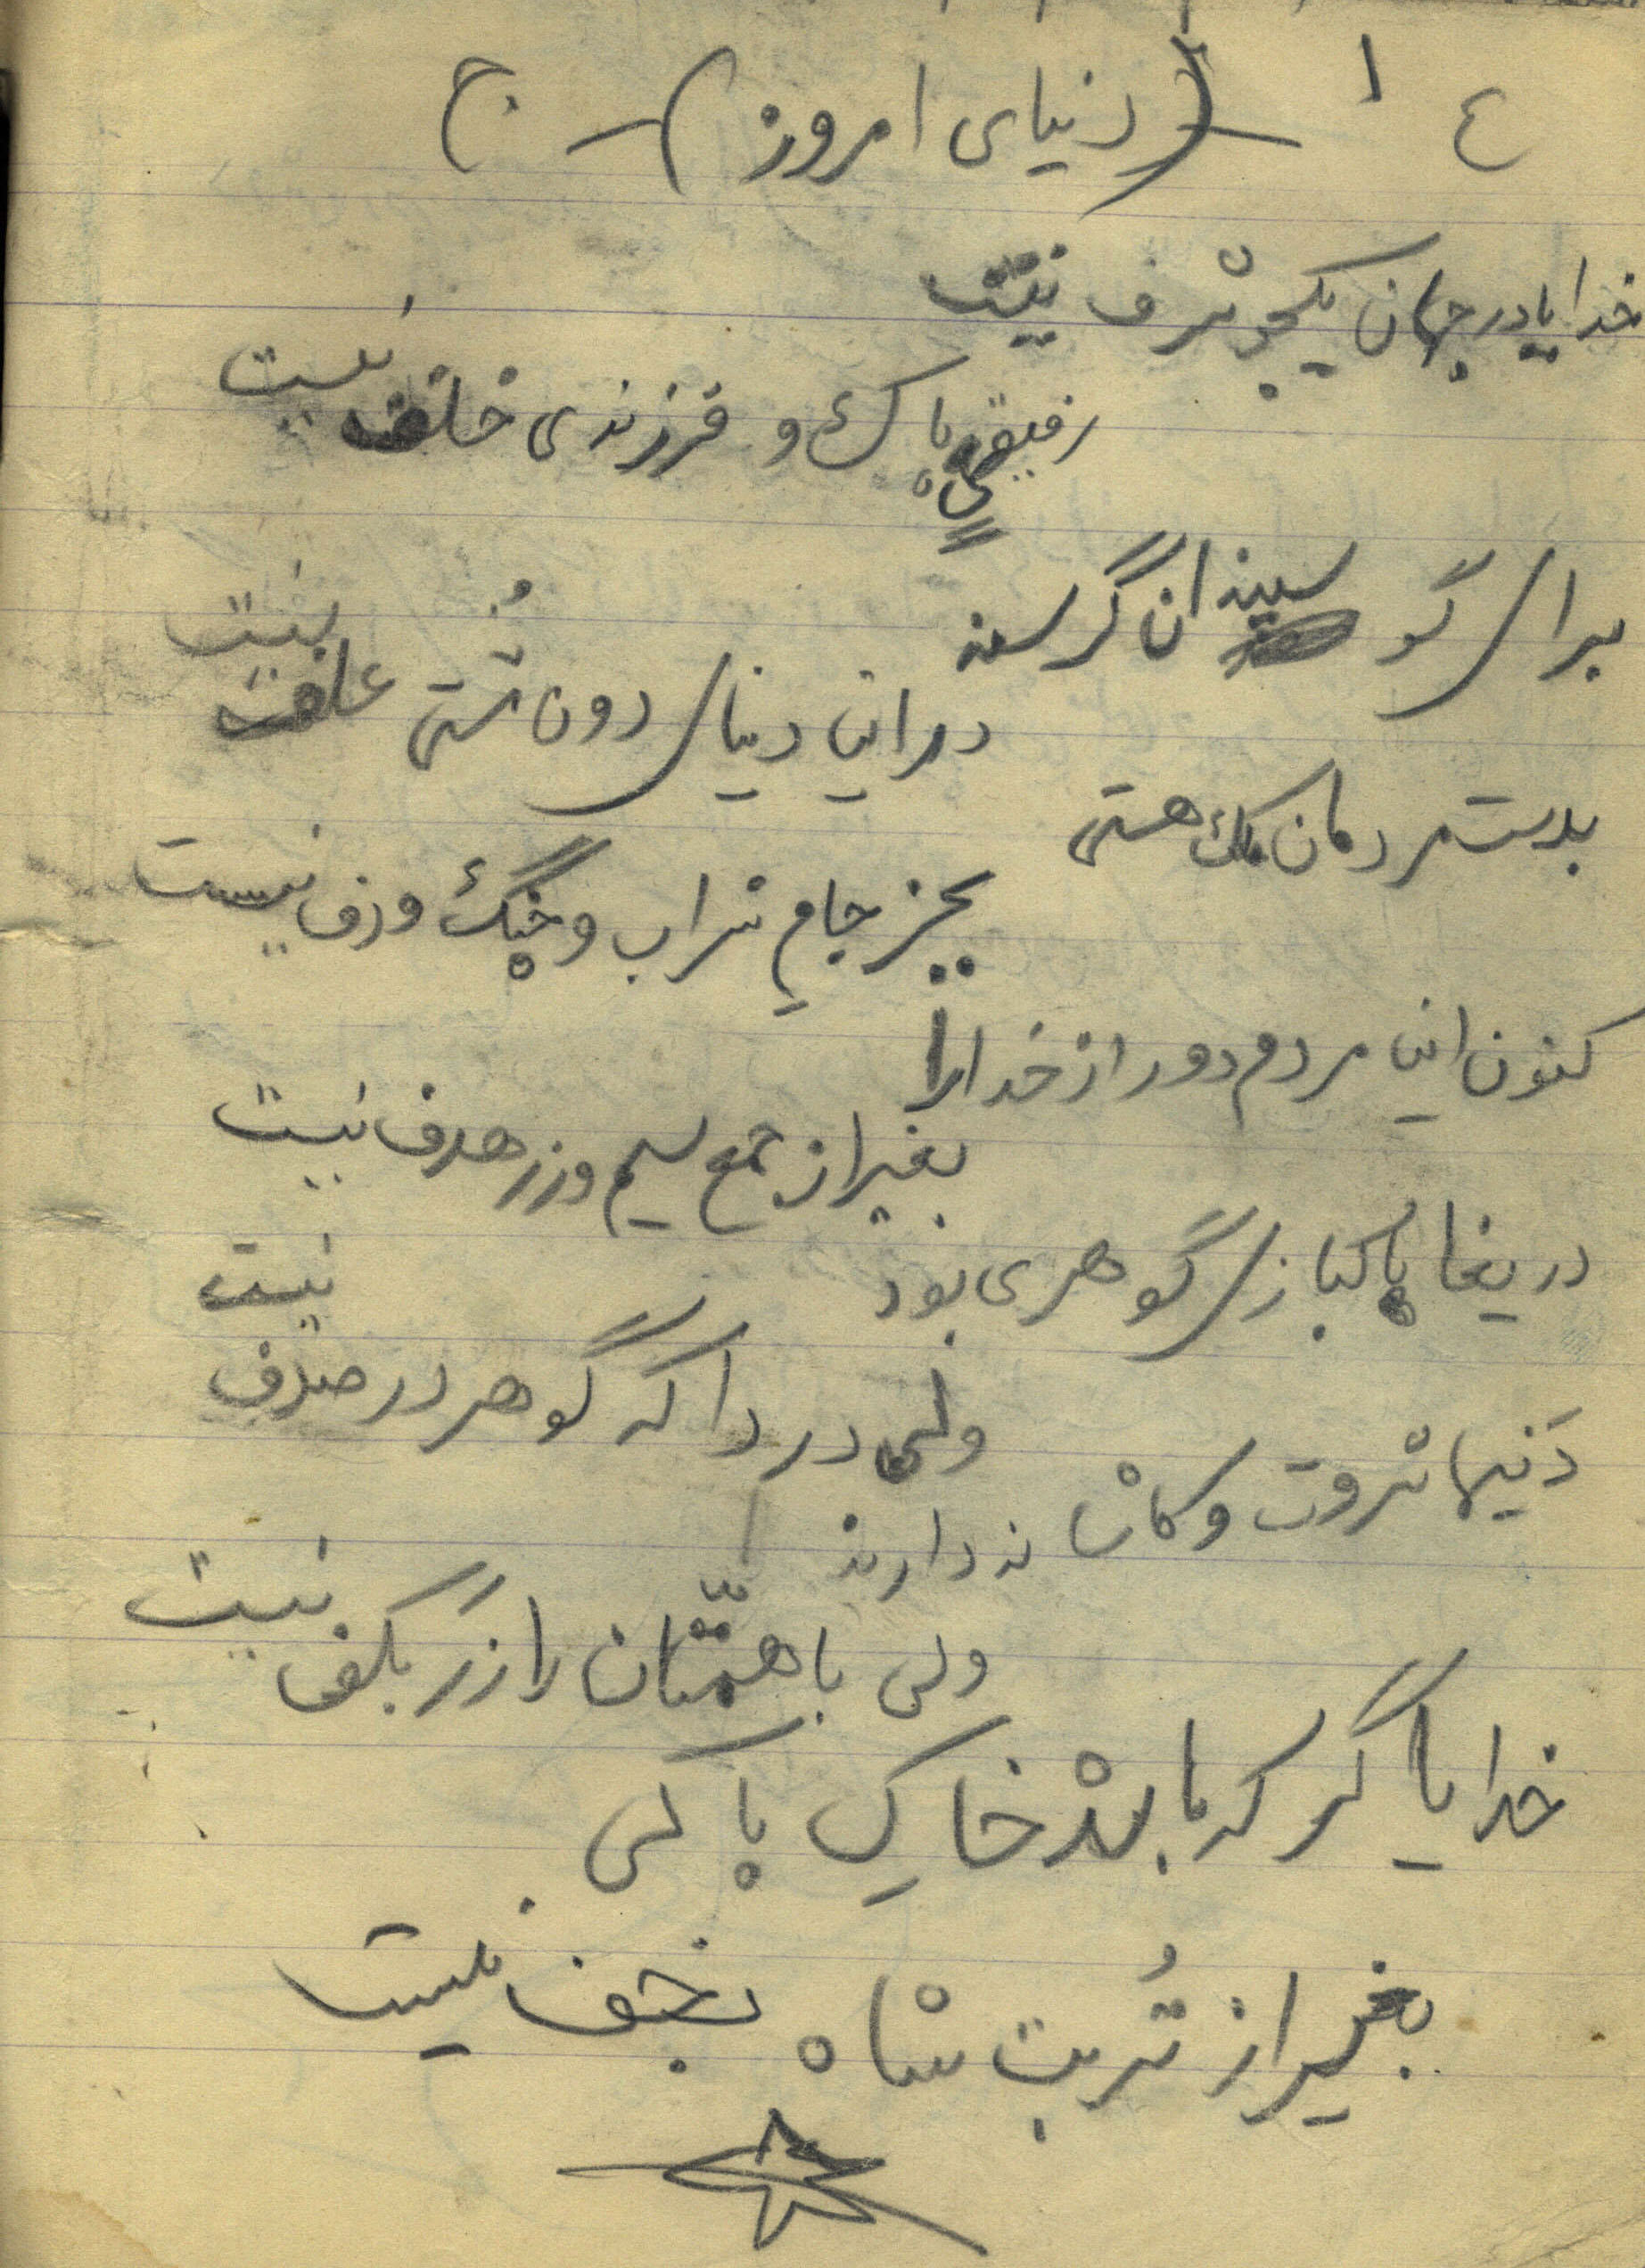 ٤ ١ -(دنیای امروز)- ج
خدایا در جهان یکجو شرف نیست
رفیقی پاک و فرزندی خلف نیست
برای گوسپندان گرسنه
در این دنیای دون مُشتی علف نیست
بدست مردمان ملک هستی
بجز جامِ شراب و چنگ و دف نیست
کنون این مردم دور از خدا را
بغیر از جمع سیم و زر هدف نیست
دریغا پاکبازی گوهری بود
ولی دردا که گوهر در صدف نیست
دَنیها ثروت و کاشانه دارند
ولی با همّتان را زر بکف نیست
خدایا گر که باشد خاکِ پاکی
بغیر از تُربت شاه نجف نیست